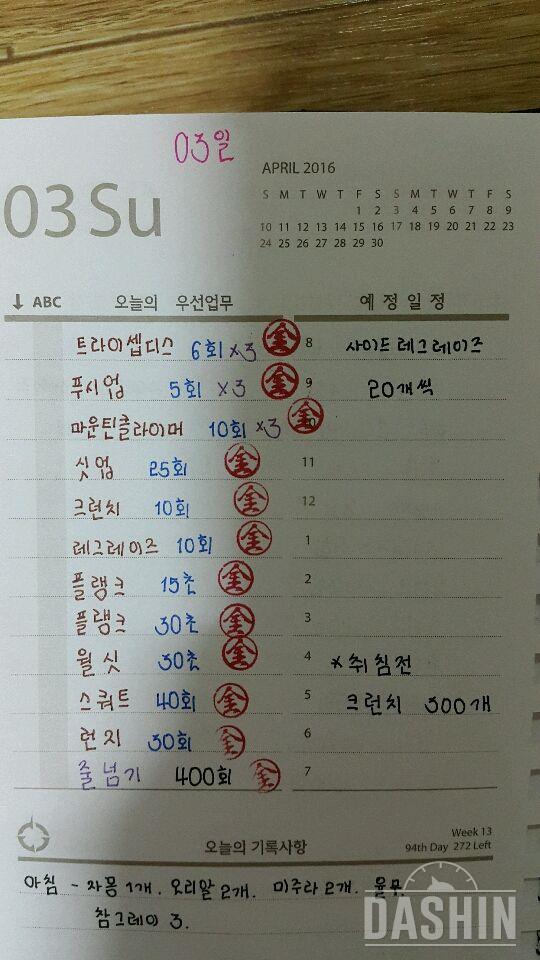 03일
03 Su
APRIL 2016
S M T W T F S S M T W T F S
1 2 3 4 5 6 7 8 9
10 11 12 13 14 15 16 17 18 19 20 21 22 23
24 25 26 27 28 29 30
↓ ABC 오늘의 우선업무 예정일정
트라이셉디스 6회 x3 金 8 사이드레그레이즈
푸시업 5회 x3 金 9 20개씩
마운틴클라이머 10회 x3 金
싯업 25회 金 11
크런치 10회 金 12
레그레이즈 10회 金 1
플랭크 15초 金 2
플랭크 30초 金 3
월싯 30초 金 4 *취침전
스쿼트 40회 金 5 크런치 300개
런지 30회 金 6
줄넘기 400회 金 7
Week 13
오늘의 기록사항 94th Day 272 Left
아침 - 자몽1개. 오리알2개. 미주라2개.
참그레이 3.
DASHIN